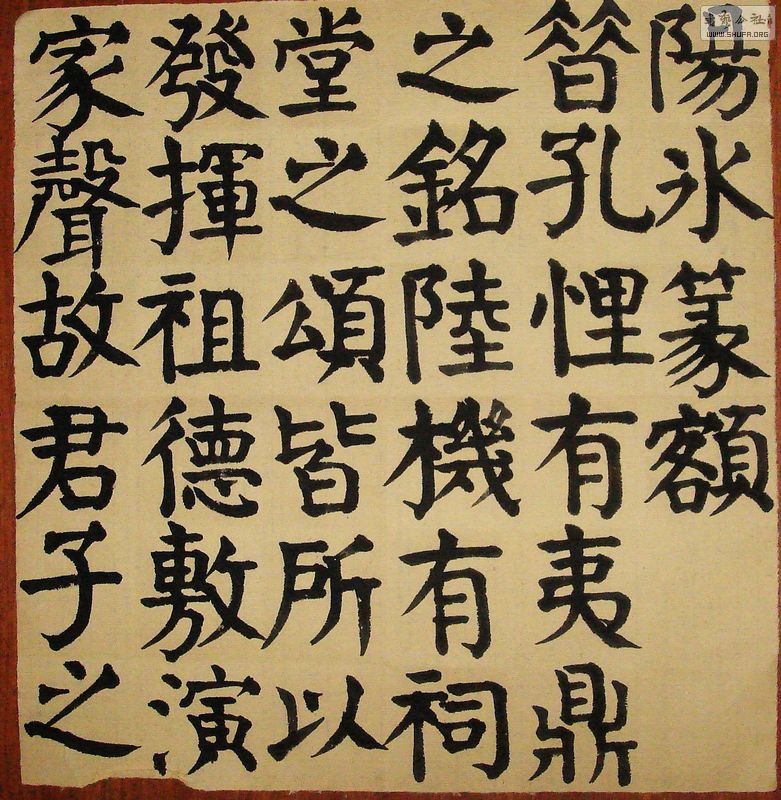 陽氷篆額
昔孔悝有夷鼎
之銘陸機有祠
堂之頌皆所以
發揮祖德敷演
家聲故君子之
WWW.SHUFA.ORG